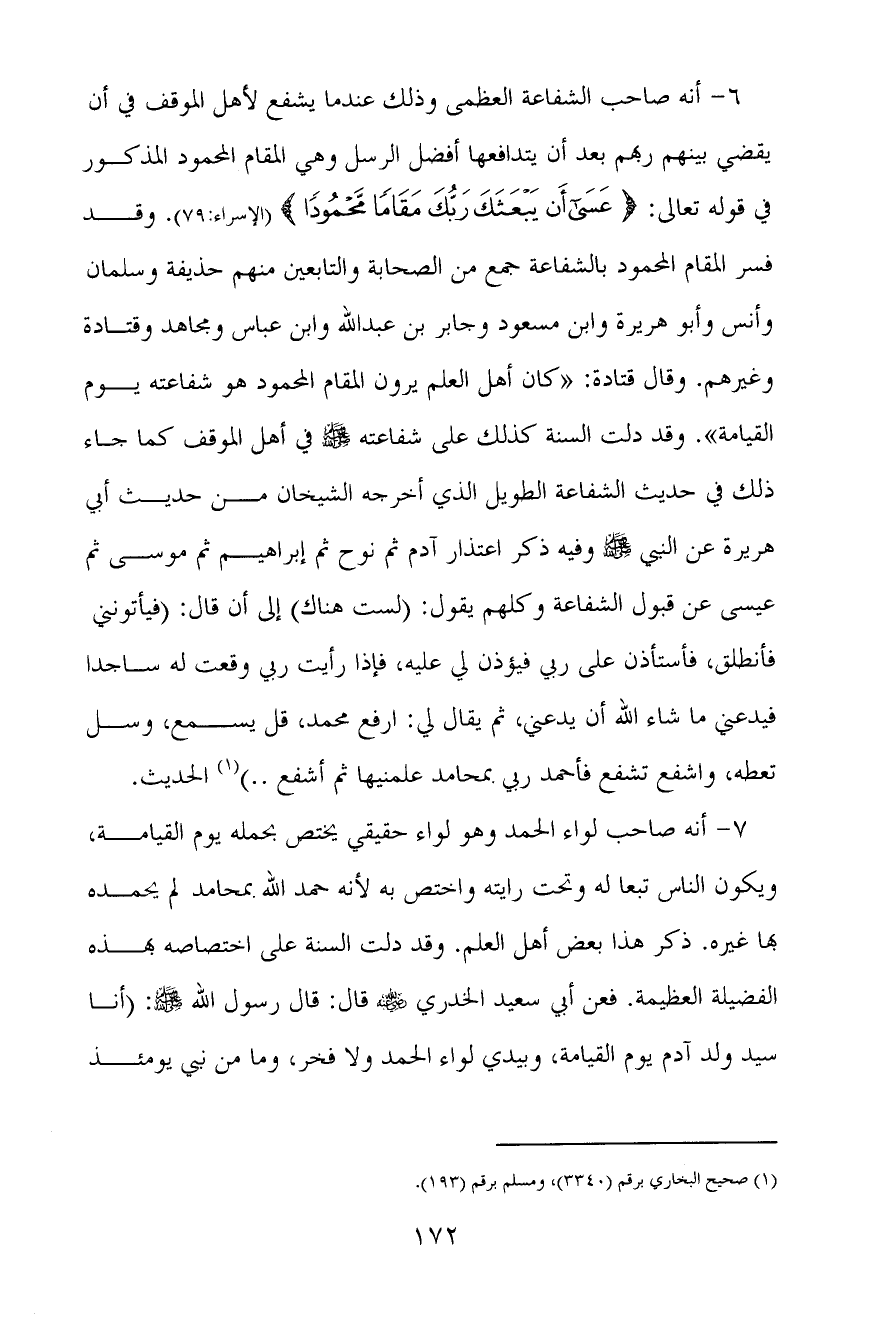 ٦- أنه صاحب الشفاعة العظمى وذلك عندما يشفع لأهل الموقف في أن
يقضي بينهم ربهم بعد أن يتدافعها أفضل الرسل وهي المقام المحمود المذكور
في قوله تعالى: ﴿ عَسَىٰٓ أَن يَبۡعَثَكَ رَبُّكَ مَقَامٗا مَّحۡمُودٗا ﴾ (الإسراء:٧٩). وقد
فسر المقام المحمود بالشفاعة جمع من الصحابة والتابعين منهم حذيفة وسلمان
وأنس وأبو هريرة وابن مسعود وجابر بن عبدالله وابن عباس ومجاهد وقتادة
وغيرهم. وقال قتادة: «كان أهل العلم يرون المقام المحمود هو شفاعته يوم
القيامة». وقد دلت السنة كذلك على شفاعته ﷺ في أهل الموقف كما جاء
ذلك في حديث الشفاعة الطويل الذي أخرجه الشيخان من حديث أبي
هريرة عن النبي ﷺ وفيه ذكر اعتذار آدم ثم نوح ثم إبراهيم ثم موسى ثم
عيسى عن قبول الشفاعة وكلهم يقول: (لست هناك) إلى أن قال: (فيأتونني
فأنطلق، فأستأذن على ربي فيؤذن لي عليه، فإذا رأيت ربي وقعت له ساجدا
فيدعني ما شاء الله أن يدعني، ثم يقال لي: ارفع محمد، قل يسمع، وسل
تعطه، واشفع تشفع فأحمد ربي بمحامد علمنيها ثم أشفع ..)(١) الحديث.
٧- أنه صاحب لواء الحمد وهو لواء حقيقي يختص بحمله يوم القيامة،
ويكون الناس تبعا له وتحت رايته واختص به لأنه حمد الله بمحامد لم يحمده
بها غيره. ذكر هذا بعض أهل العلم. وقد دلت السنة على اختصاصه بهذه
الفضيلة العظيمة. فعن أبي سعيد الخدري رضي الله عنه قال: قال رسول الله ﷺ: (أنا
سيد ولد آدم يوم القيامة، وبيدي لواء الحمد ولا فخر، وما من نبي يومئذ
(١) صحيح البخاري برقم (٣٣٤٠)، ومسلم برقم (١٩٣).
١٧٢